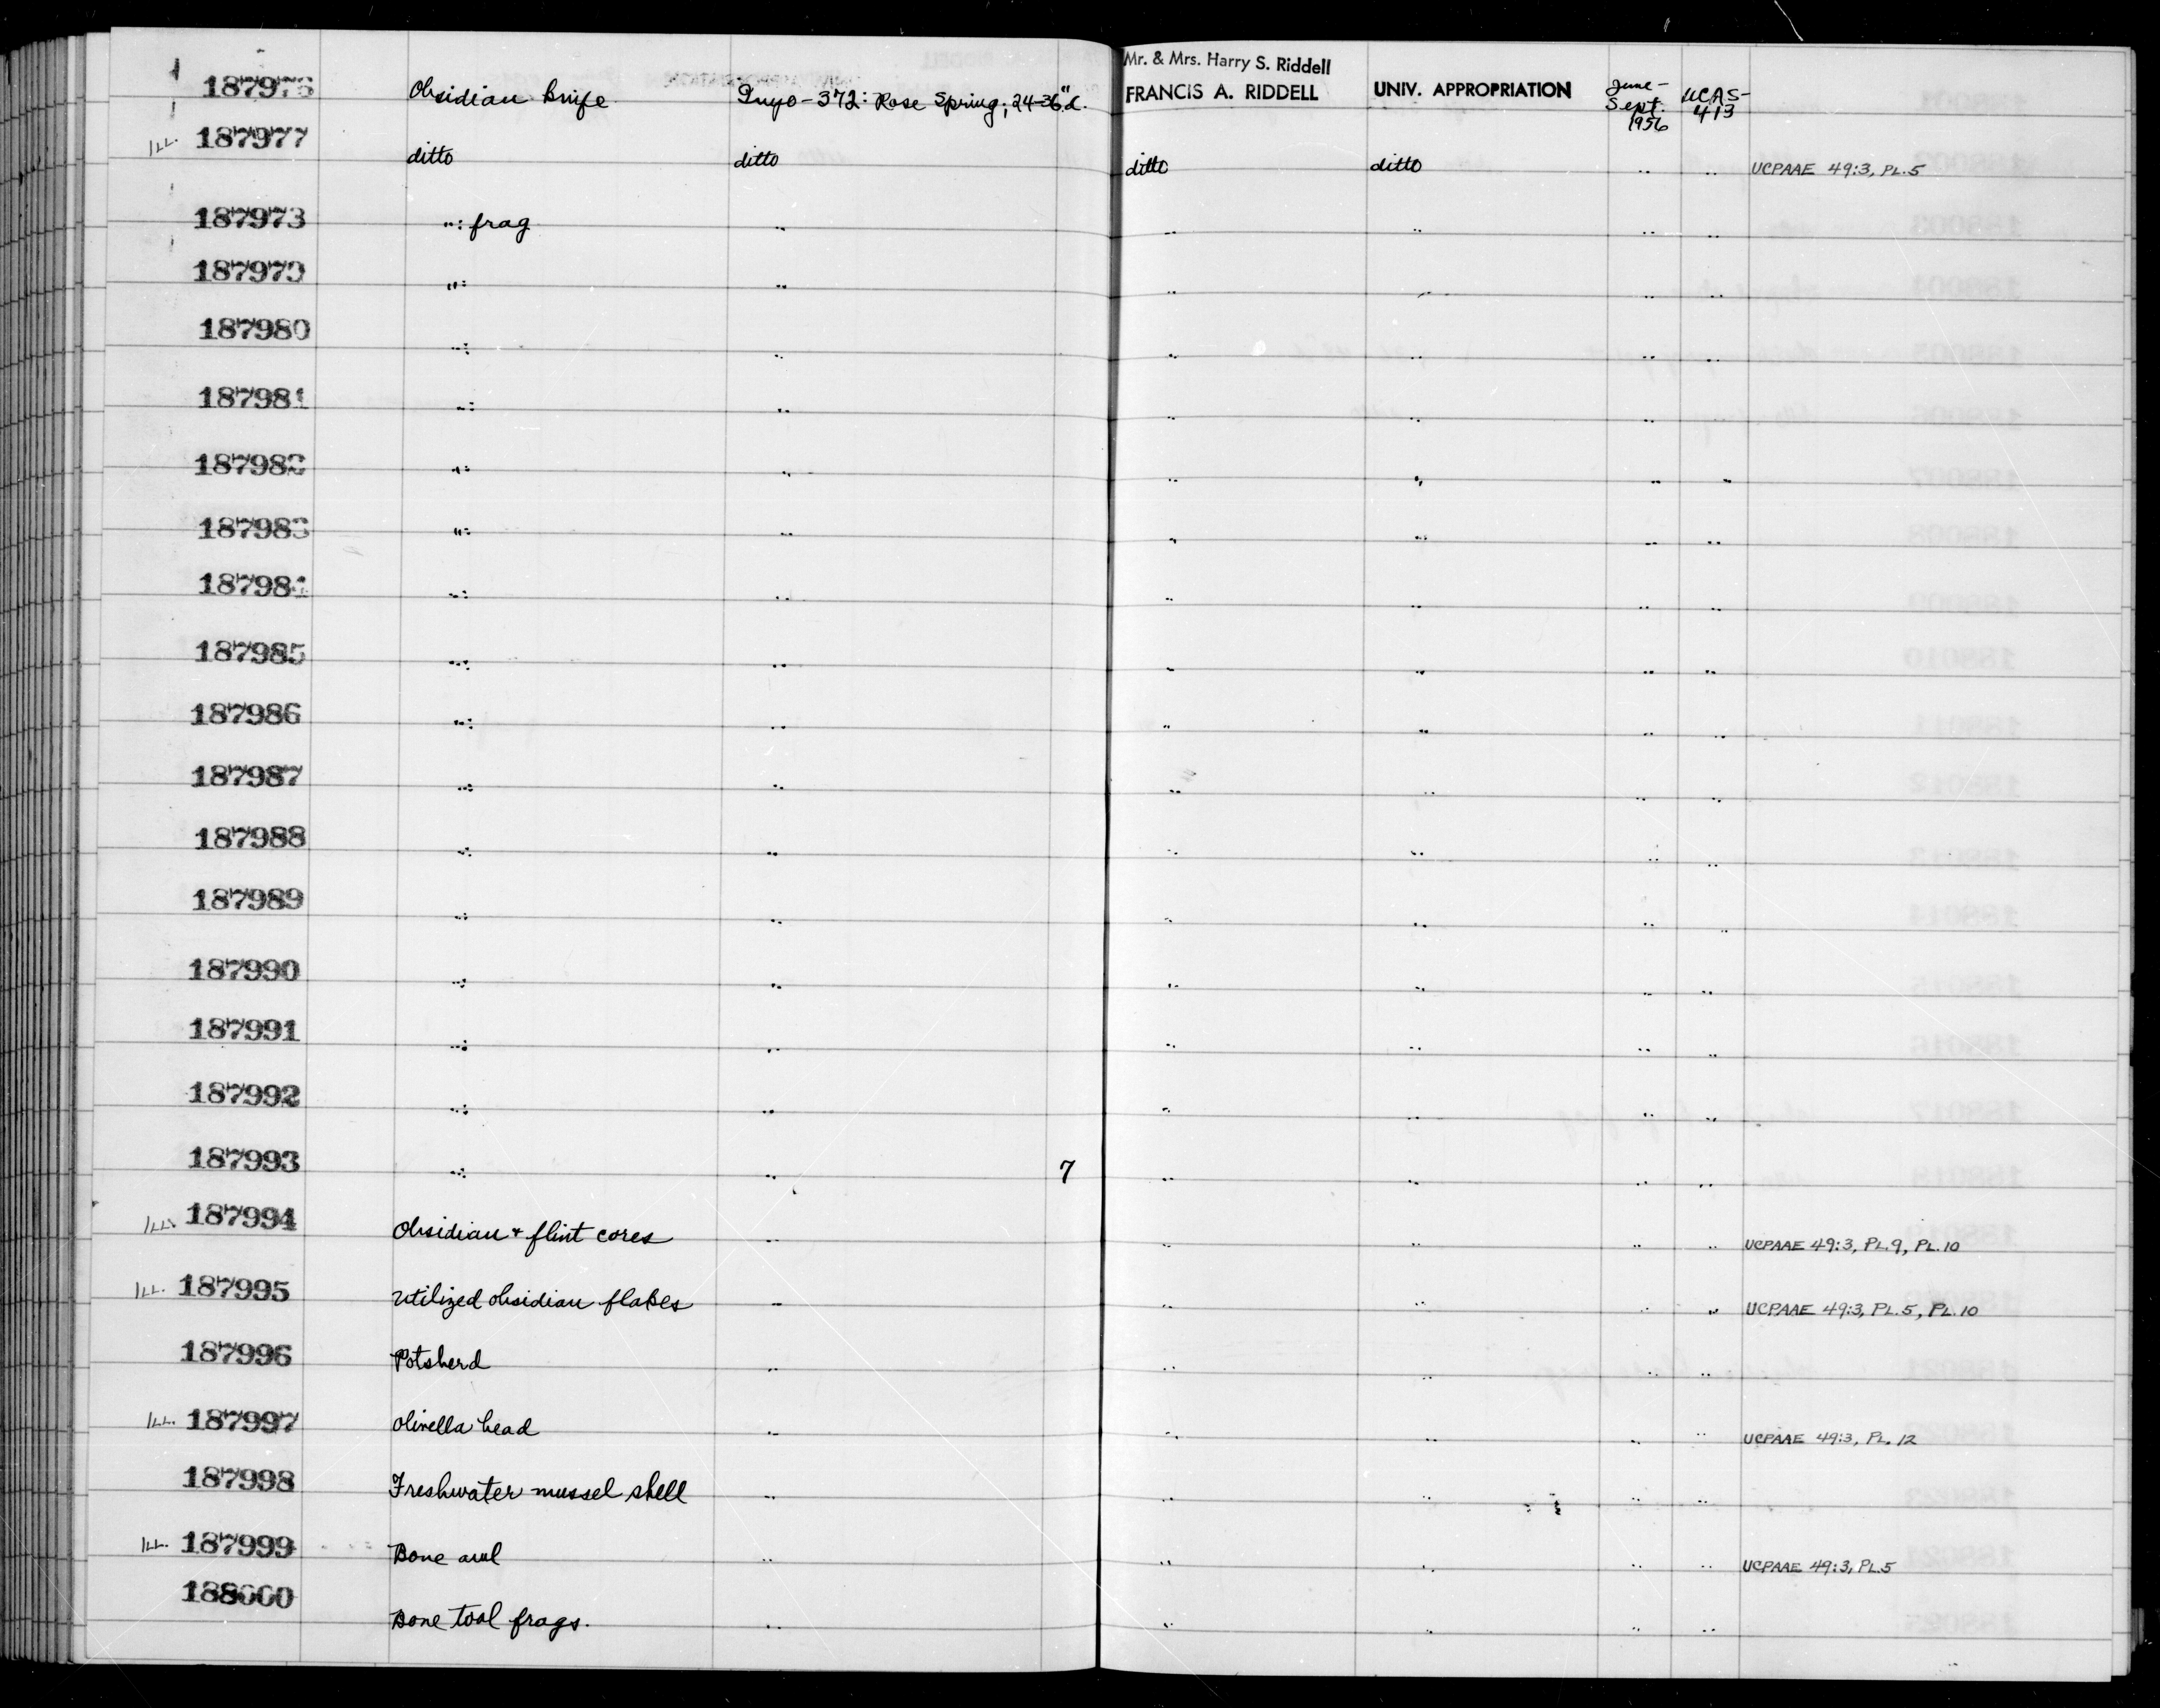 Mr. & Mrs. Harry S. Riddell
187976 Obsidian knife Inyo-372: Rose Spring; 24-36" d. FRANCIS A. RIDDELL UNIV. APPROPRIATION June-Sept. 1956 UCAS-413
ILL. 187977 ditto ditto ditto ditto " " UCPAAE 49:3, PL.5
187978 ": frag " " " " "
187979 ": " " " " "
187980 ": " " " " "
187981 ": " " " " "
187982 ": " " " " "
187983 ": " " " " "
187984 ": " " " " "
187985 ": " " " " "
187986 ": " " " " "
187987 ": " " " " "
187988 ": " " " " "
187989 ": " " " " "
187990 ": " " " " "
187991 ": " " " " "
187992 ": " " " " "
187993 ": " 7 " " " "
ILL. 187994 Obsidian + flint cores " " " " " UCPAAE 49:3, PL.9, PL.10
ILL. 187995 Utilized obsidian flakes " " " " " UCPAAE 49:3, PL.5, PL.10
187996 Potsherd " " " " "
ILL. 187997 Olivella bead " " " " " UCPAAE 49:3, PL. 12
187998 Freshwater mussel shell " " " " "
ILL. 187999 Bone awl " " " " " UCPAAE 49:3, PL.5
188000 Bone tool frags. " " " " "